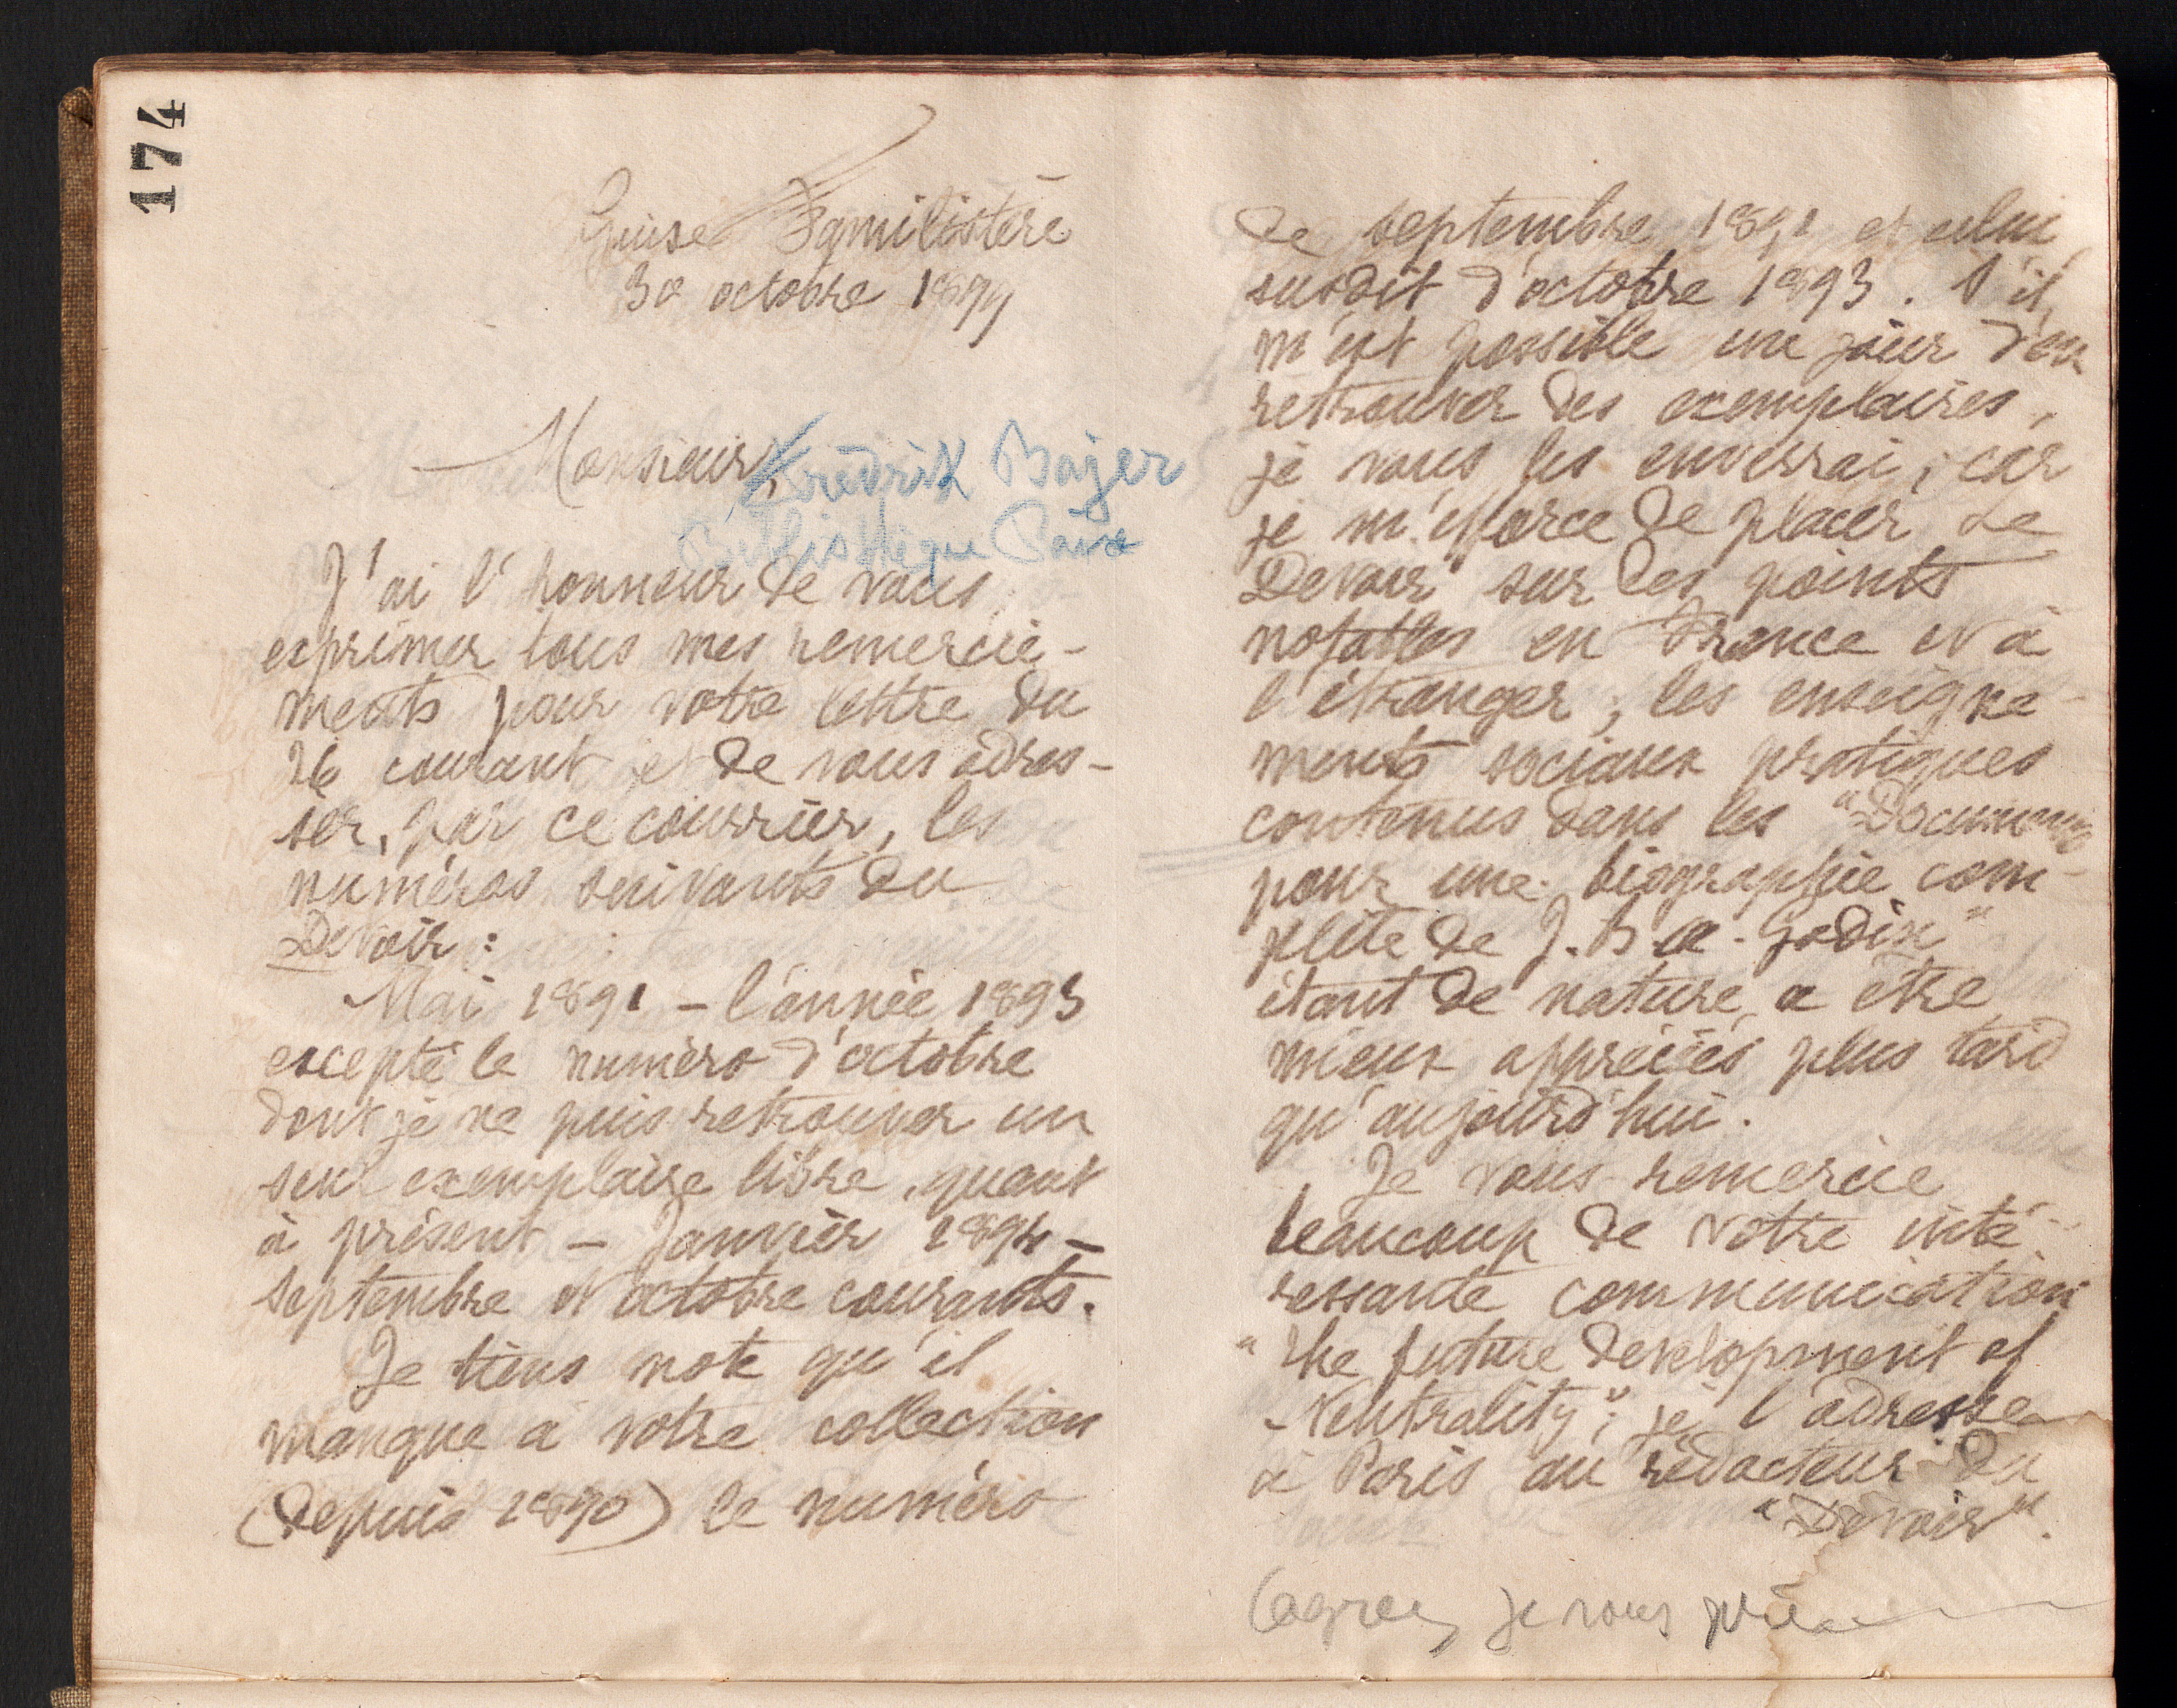 174
Guise Familistère
30 octobre 1899
Monsieur, Frédrik Bajer
Bibliothèque Paix
J'ai l'honneur de vous
exprimer tous mes remercie-
ments pour votre lettre du
26 courant et de vous adres-
ser, par ce courrier, les
numéros suivants du
Devoir :
Mai 1891 – l'année 1893
excepté le numéro d'octobre
dont je ne puis retrouver un
seul exemplaire libre, quant
à présent – Janvier 1894 –
septembre et octobre courants.
Je tiens note qu'il
manque à votre collection
(depuis 1890) le numéro
de septembre 1891 et celui
susdit d'octobre 1893. S'il
m'est possible un jour d'en
retrouver des exemplaires,
je vous les enverrai ; car
je m'efforce de placer Le
Devoir sur les points
notables en France et à
l'étranger ; les enseigne-
ments sociaux pratiques
contenus dans les "Documents
pour une biographie com-
plète de J. B. a. Godin"
étant de nature a être
mieux appréciés plus tard
qu'aujourd'hui.
Je vous remercie
beaucoup de votre inté-
ressante communication
"The future development of
Neutrality" ; je l'adresse
à Paris au rédacteur du
"Devoir".
(agréez je vous prie